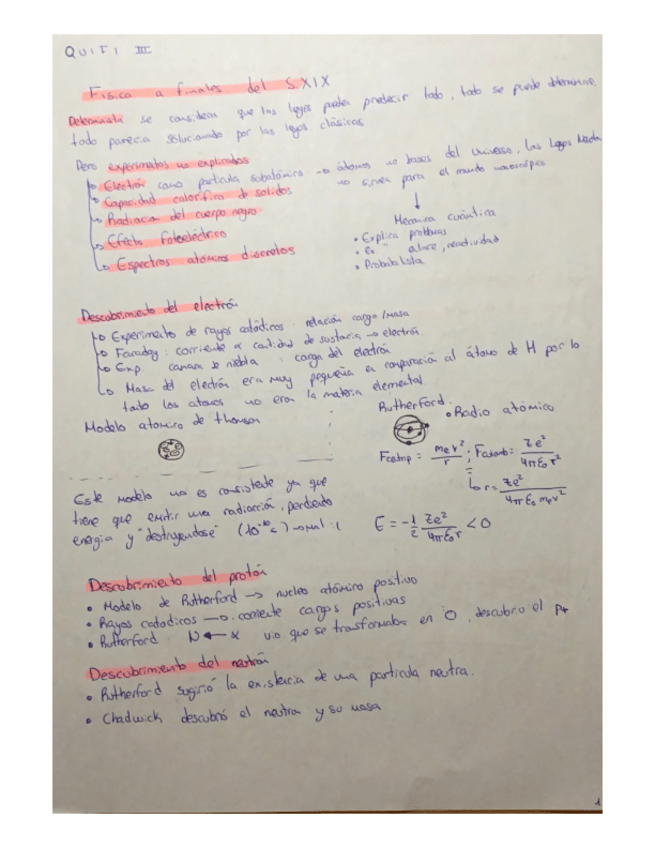 QUITI III
Física a finales del S.XIX
Determinista se considera que las leyes pueden predecir todo, todo se puede determinar,
todo parecía solucionado por las leyes clásicas
Pero experimentos no explicados
↳ Electrón como partícula subatómica → átomos no bases del universo, las leyes
no sirven para el mundo
↳ Capacidad calorífica de solidos
↳ Radiación del cuerpo negro
↳ Efecto fotoeléctrico
↳ Espectros atómicos discretos
↓
Mecánica cuántica
• Explica
• " reactividad
• Probabilista
Descubrimiento del electrón
↳ Experimento de rayos catódicos : relación carga/masa
↳ Faraday : corriente α cantidad de sustancia → electrón.
↳ Exp. camara de niebla : carga del electrón
↳ Masa del electrón era muy pequeña en comparación al átomo de H por lo
tanto los atomos no eran la materia elemental
Modelo atomico de Thomson
Rutherford:
• Radio atómico
Fcentrp = mev²/r ; = Ze²/4πε₀r²
↳ r = Ze²/4πε₀mev²
E = -1/2 Ze²/4πε₀r < 0
Este modelo no es consistente ya que
tiene que emitir una radiacción, perdiendo
energia y "destruyendose" → mal :(
Descubrimiento del protón
• Modelo de Rutherford → nucleo atómico positivo
• Rayos catodicos → corriente cargas positivas
• Rutherford N ← α vio que se transformaba en O, descubrio el p+
Descubrimiento del neutrón
• Rutherford sugirió la existencia de una particula neutra.
• Chadwick descubrió el neutron y su masa
1